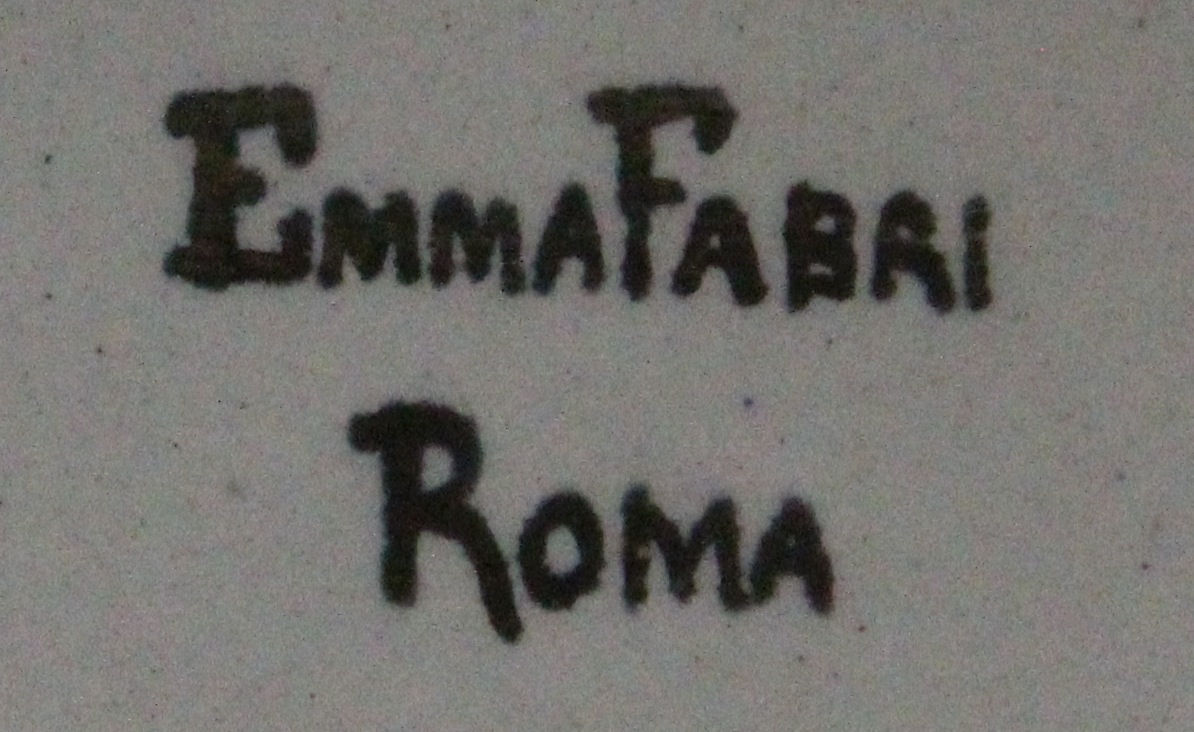 EMMA FABRI
ROMA